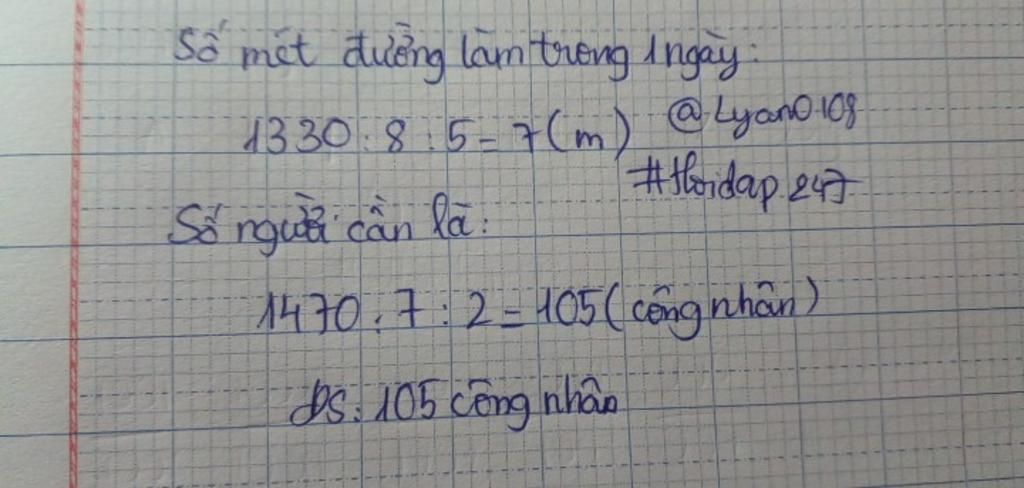 Số mét đường làm trong 1 ngày:
1330 : 8 : 5 = 7 (m) @Lyan0108
#Hoidap247
Số người cần là:
1470 : 7 : 2 = 105 (công nhân)
ĐS: 105 công nhân